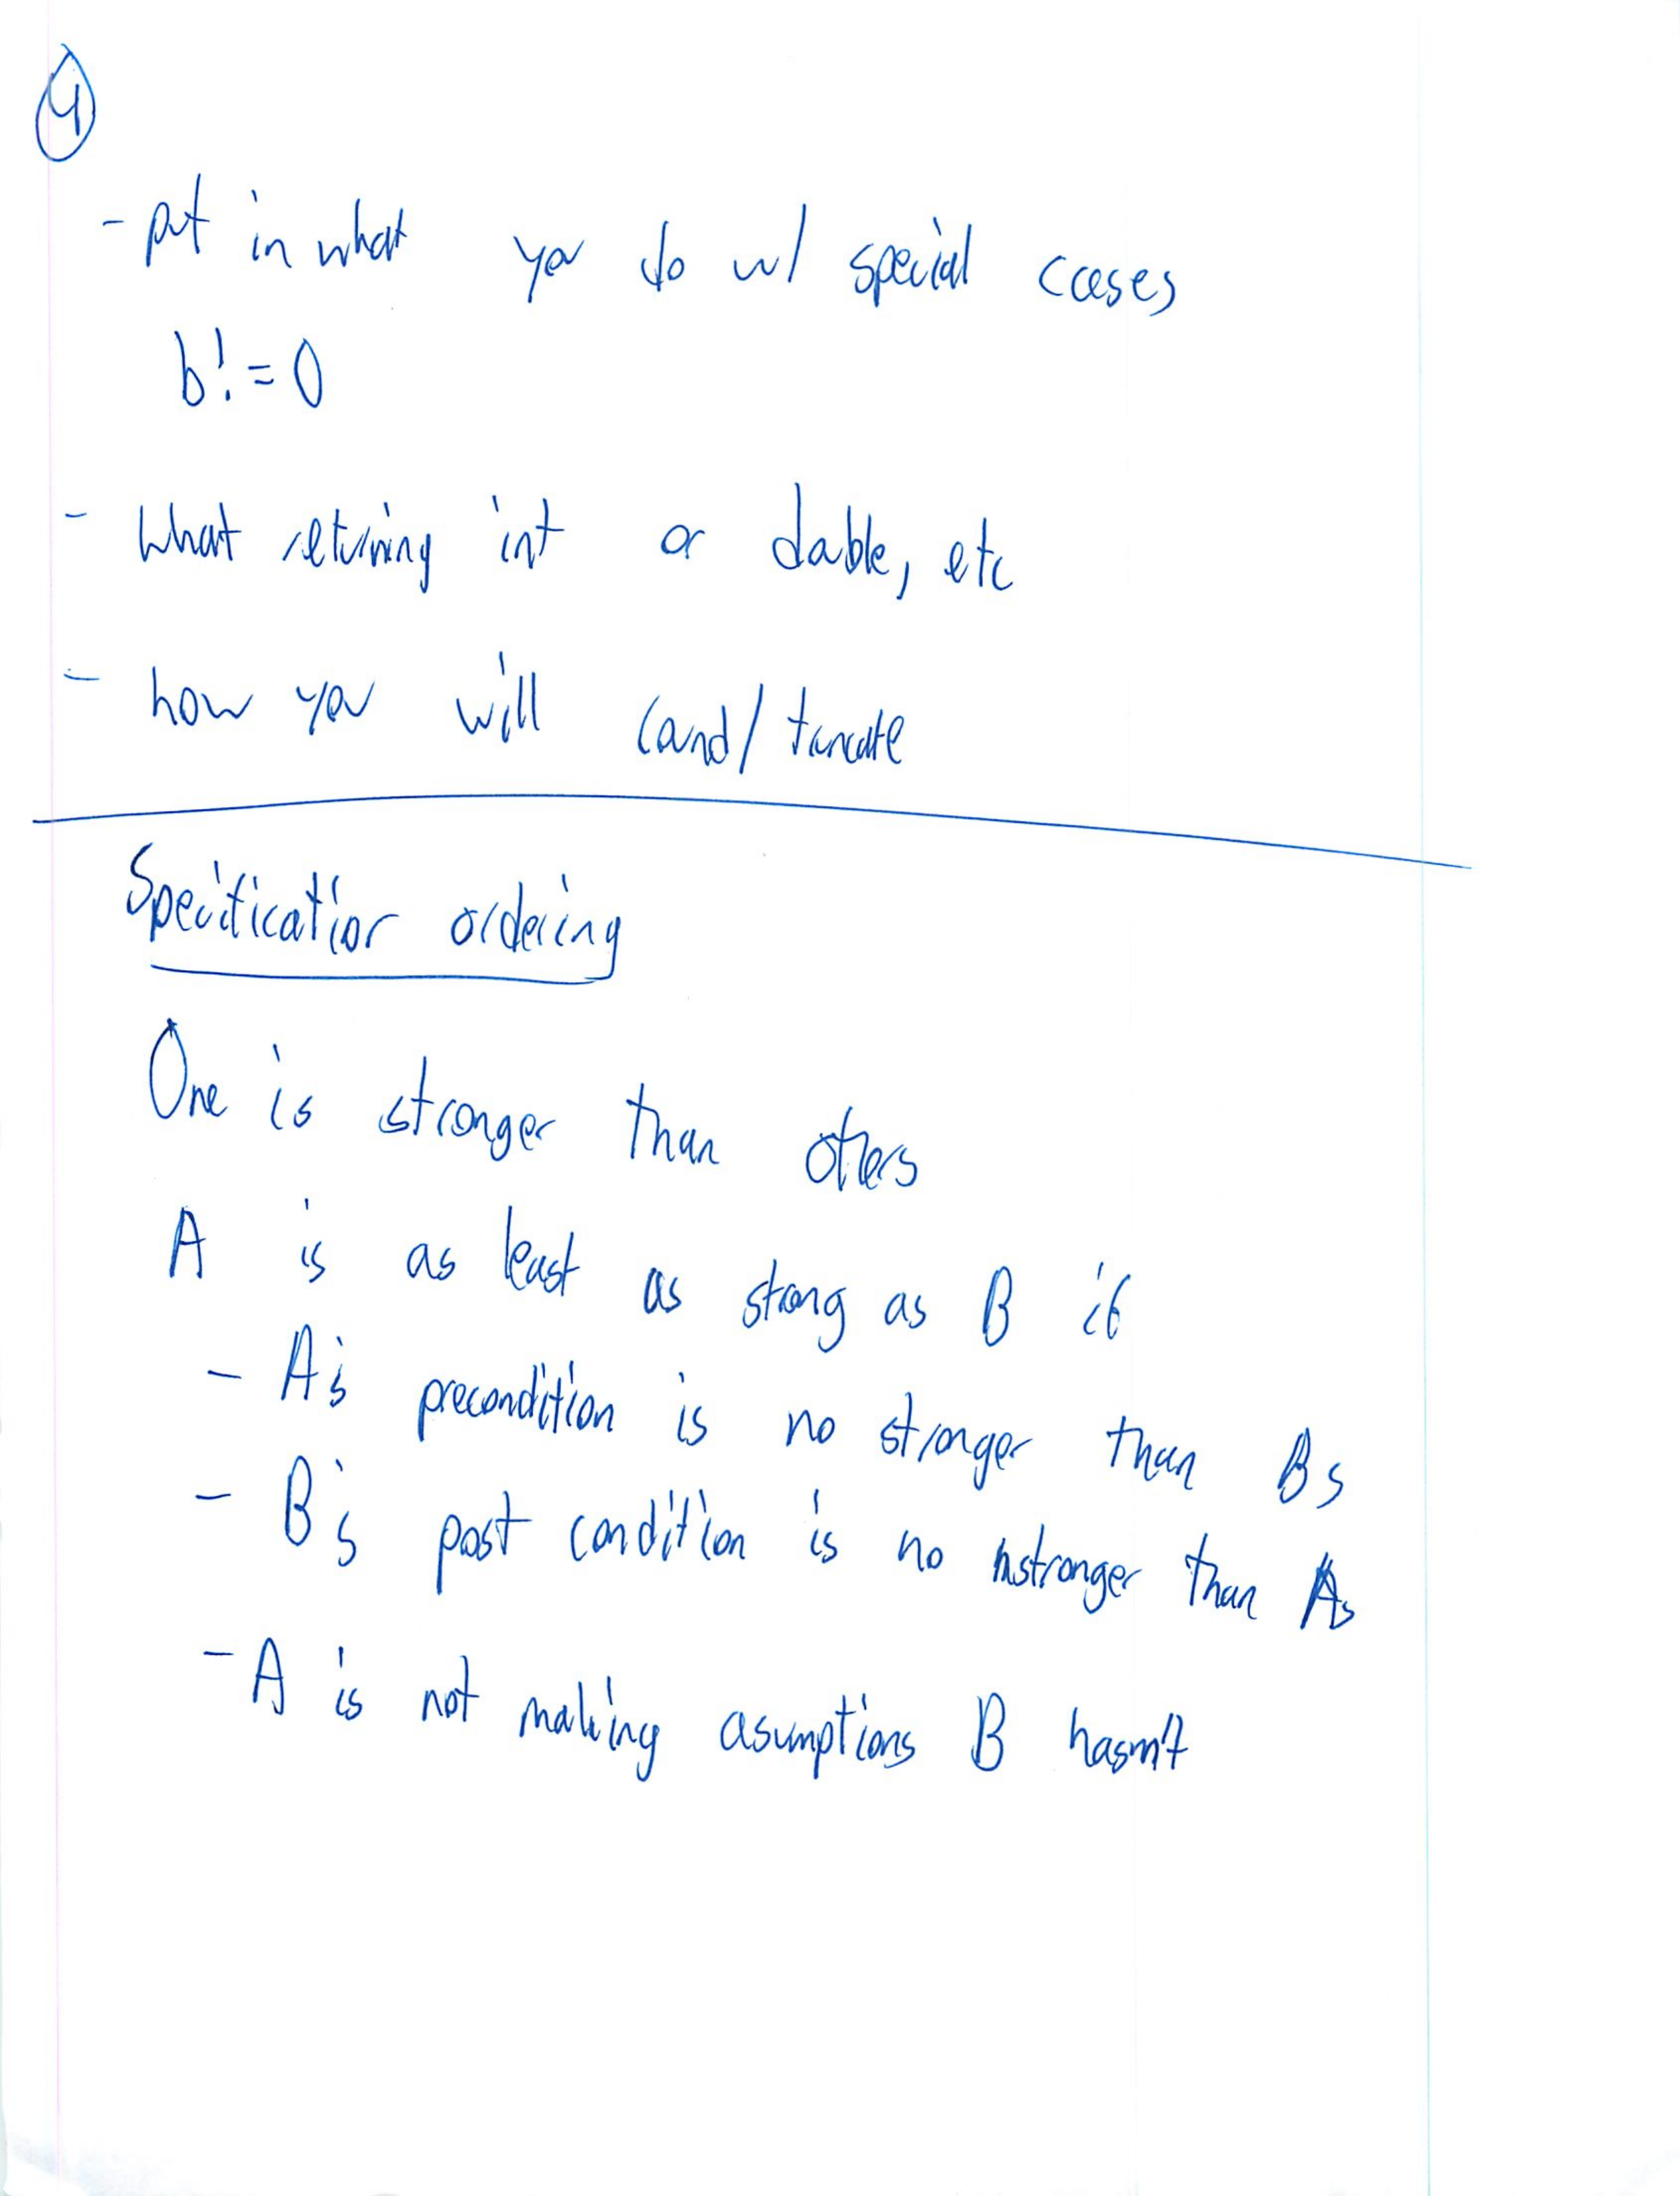 4
- put in what you do w/ special cases
b != 0
- what returning int or double, etc
- how you will round / truncate
Specification ordering
One is stronger than others
A is as least as strong as B if
- A's precondition is no stronger than Bs
- B's post condition is no stronger than As
- A is not making asumptions B hasn't